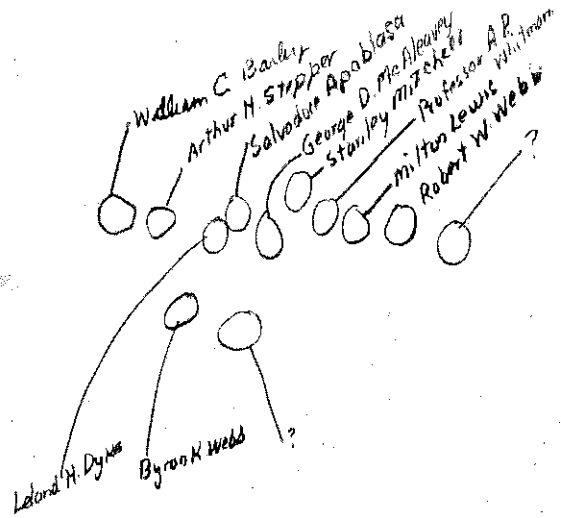 William C. Barley
Arthur H. Stepper
Salvodore Apablasa
George D. McAleavey
Stanley Mitchell
Professor A.P. Whitman
Milton Lewis
Robert W. Webb
?
Leland H. Dykes
Byron K Webb
?